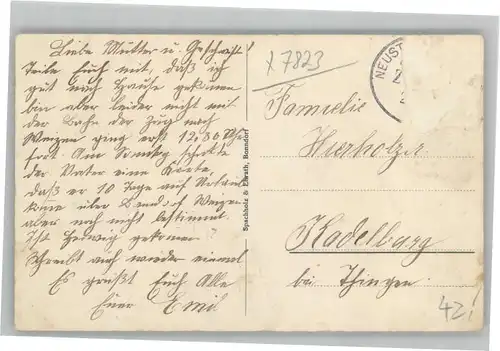 Liebe Mutter u. Geschwist
Teile Euch mit, daß ich
gut nach Hause gekomen
bin aber leider nicht mit
der Bahn der Zug nach
Weizen ging erst 12,30 Uhr
fort. Am Sonntag schickte
der Vater eine Karte,
daß er 10 Tage auf Urlaub
kome über Bonndorf Weizen
aber noch nicht bestimmt.
Ist gekomen
Schreibt auch wieder einmal
Es grüßt Euch Alle
Euer Emil
Spachholz & Ehrath, Bonndorf
x 7823
NEUST
Famielie
Hierholzer
Kadelburg
bei Thingen
42!